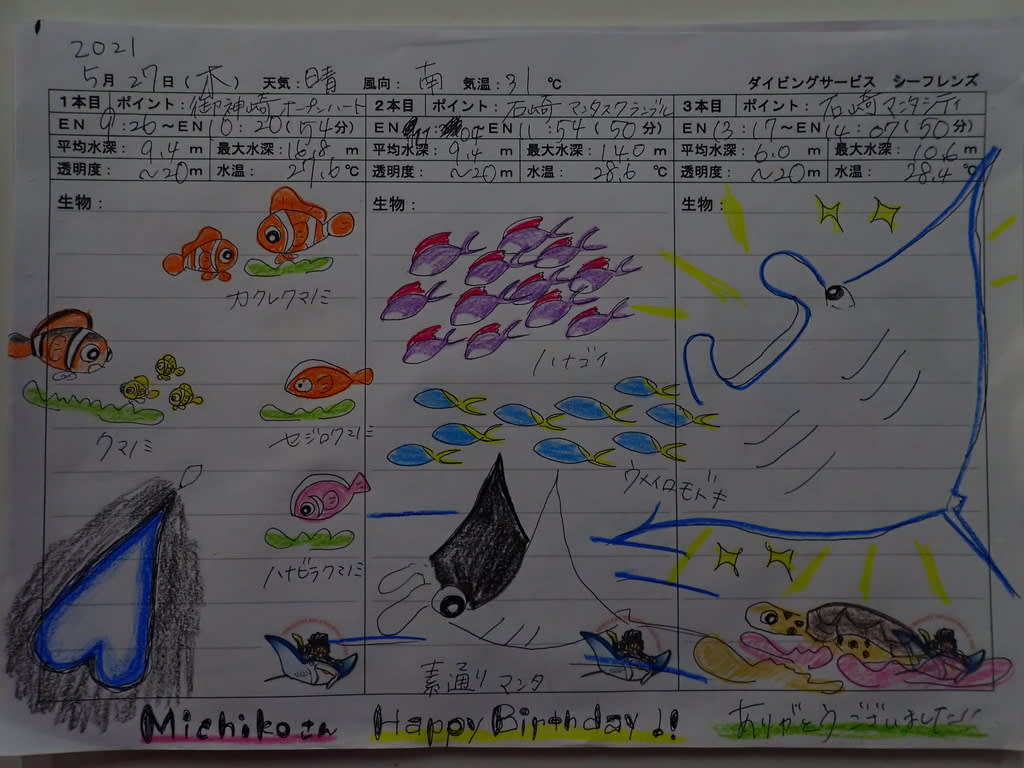 2021
5月27日(木) 天気:晴 風向:南 気温:31℃ ダイビングサービス シーフレンズ
1本目 ポイント:御神崎オープンハート 2本目 ポイント:石崎マンタスクランブル 3本目 ポイント:石崎マンタシティ
EN 9:26~EN10:20(54分) EN 11:04 EN 11:54(50分) EN 13:17~EN 14:07(50分)
平均水深:9.4m 最大水深:16.8m 平均水深:9.4m 最大水深:14.0m 平均水深:6.0m 最大水深:10.6m
透明度:~20m 水温:27.6℃ 透明度:~20m 水温:28.6℃ 透明度:~20m 水温:28.4℃
生物: 生物: 生物:
カクレクマノミ
ハナゴイ
クマノミ セジロクマノミ
ウメイロモドキ
ハナビラクマノミ
素通りマンタ
Michikoさん Happy Birthday♪! ありがとうございました!!